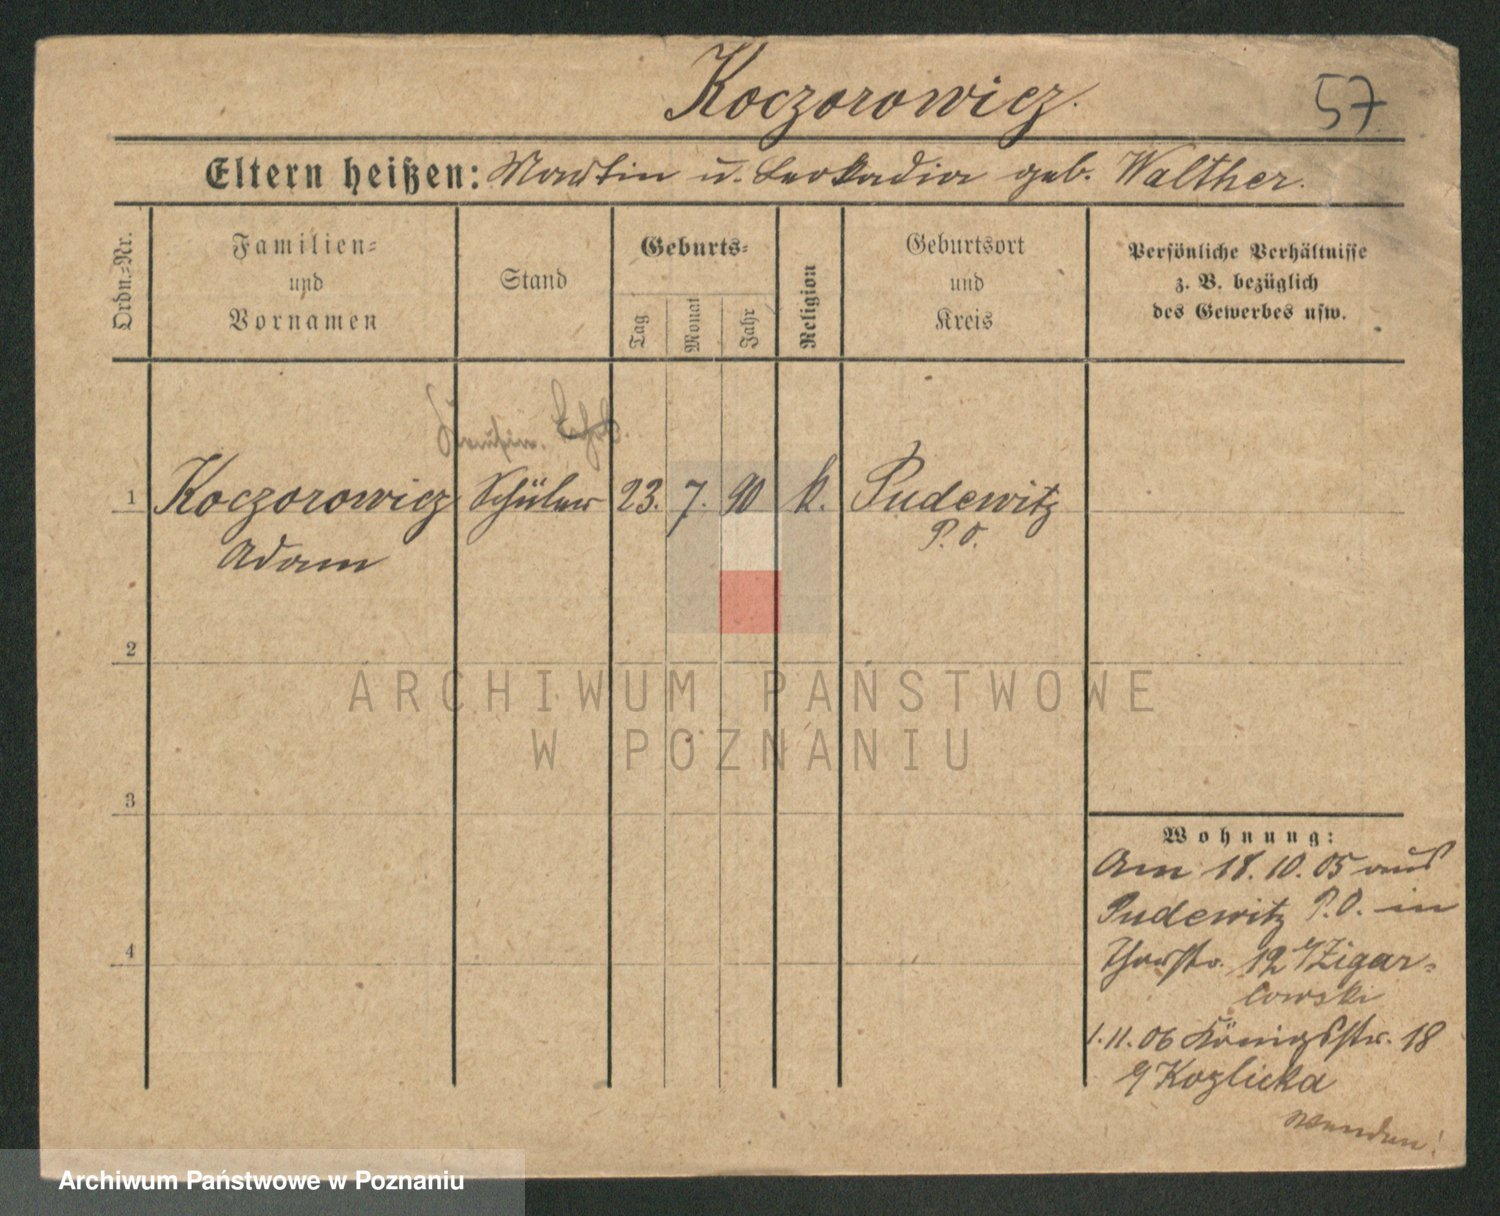 Koczorowicz.
57
Eltern heißen: Martin u. Leokadia geb. Walther.
Ordn.=Nr.
Familien=
und
Vornamen
Stand
Geburts=
Tag
Monat
Jahr
Religion
Geburtsort
und
Kreis
Persönliche Verhältnisse
z. B. bezüglich
des Gewerbes usw.
1 Koczorowicz Schüler 23. 7. 90 k. Pudewitz
Adam
P. O.
2
3
4
ARCHIWUM PAŃSTWOWE
W POZNANIU
Wohnung:
Am 18. 10. 05 aus
Pudewitz P. O. in
Thorstr. 12 Zigar=
lowski
1. 11. 06 Königsstr. 18
Kozlicka
wenden!
Archiwum Państwowe w Poznaniu